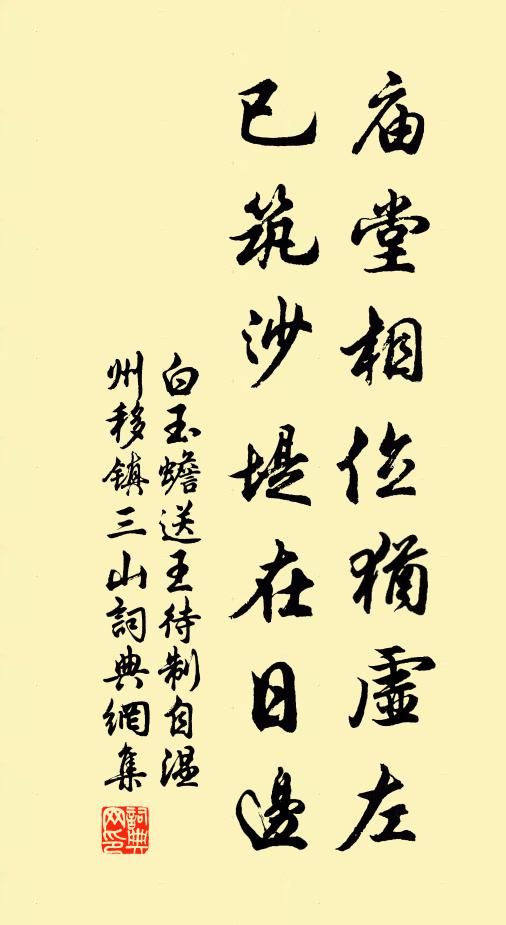 庙堂相位犹虚左
已筑沙堤在日邊
白玉蟾送王待制自温
州移鎮三山詞典網集
詞典
网印